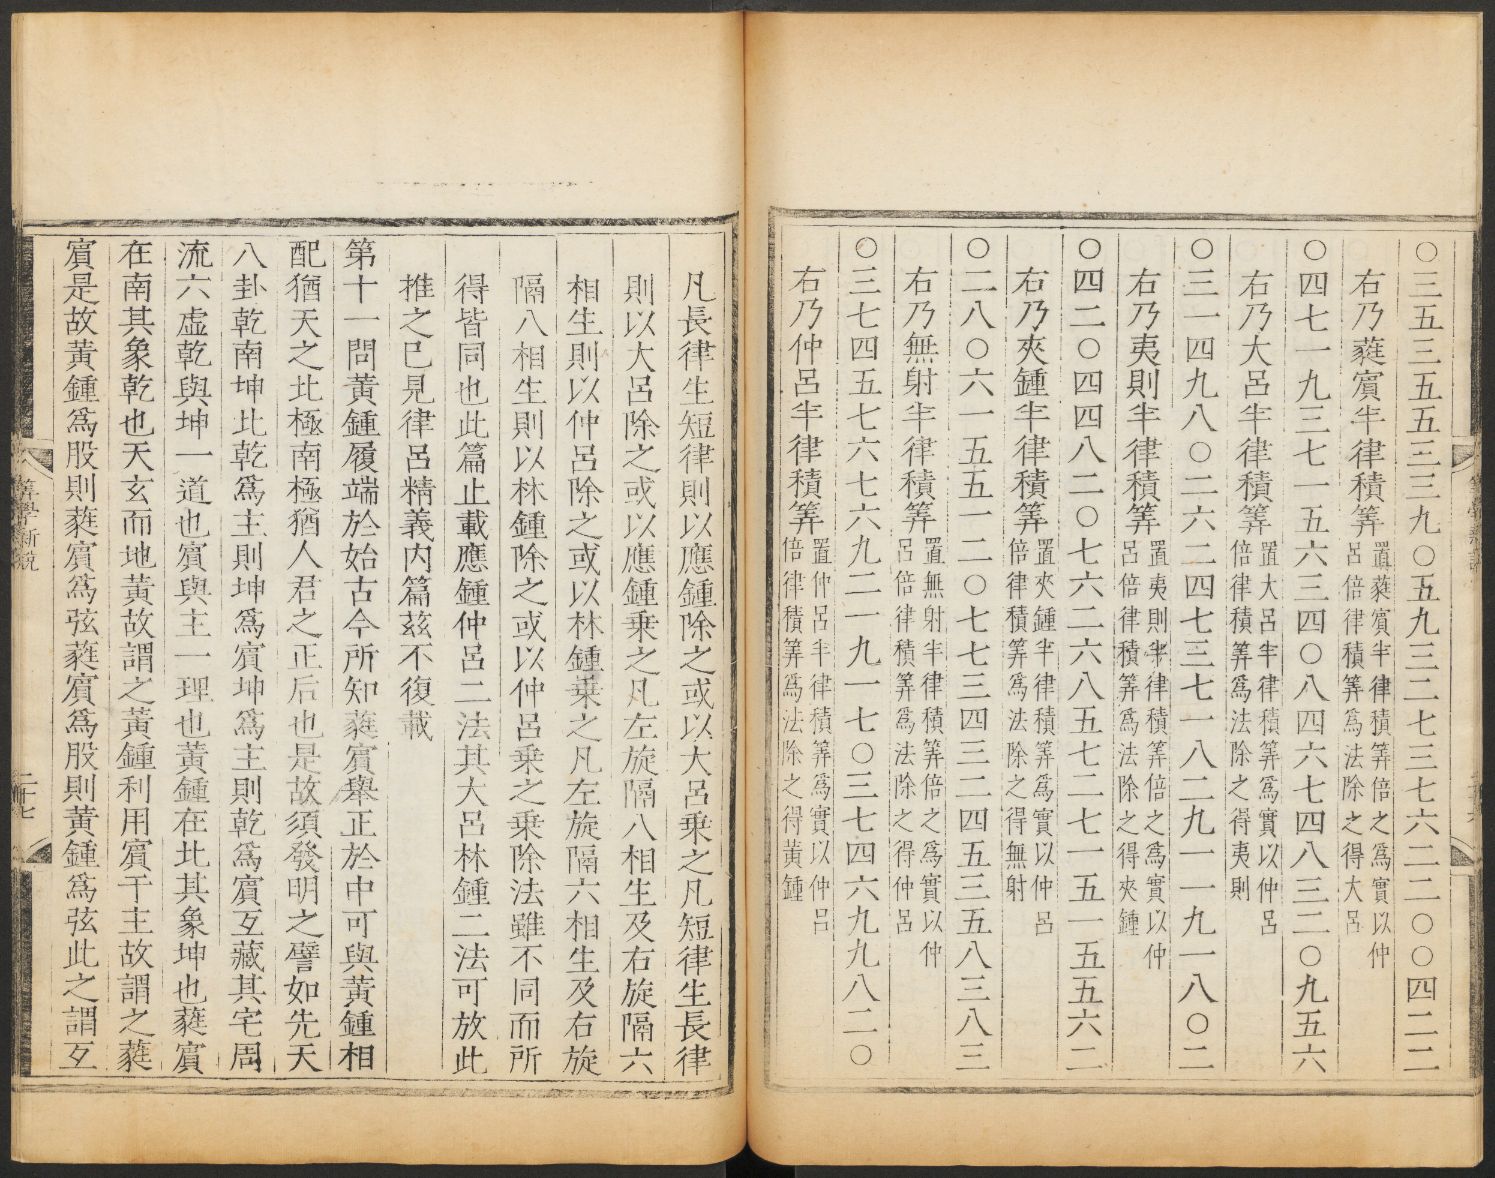 〇三五三五五三三九〇五九三二七三七六二二〇〇四二二
右乃蕤賔半律積筭置蕤賔半律積筭倍之爲實以仲
呂倍律積筭爲法除之得大呂
〇四七一九三七一五六三四〇八四六七四八三二〇九五六
右乃大呂半律積筭置大呂半律積筭爲實以仲呂
倍律積筭爲法除之得夷則
〇三一四九八〇二六二四七三七一八二九一一九一八〇二
右乃夷則半律積筭置夷則半律積筭倍之爲實以仲
呂倍律積筭爲法除之得夾鍾
〇四二〇四四八二〇七六二六八五七二七一五一五五六二
右乃夾鍾半律積筭置夾鍾半律積筭爲實以仲呂
倍律積筭爲法除之得無射
〇二八〇六一五五一二〇七七三四三二四五三五八三八三
右乃無射半律積筭置無射半律積筭倍之爲實以仲
呂倍律積筭爲法除之得仲呂
〇三七四五七六七六九二一九一七〇三七四六九九八二〇
右乃仲呂半律積筭置仲呂半律積筭爲實以仲呂
倍律積筭爲法除之得黃鍾
凡長律生短律則以應鍾除之或以大呂乗之凡短律生長律
則以大呂除之或以應鍾乗之凡左旋隔八相生及右旋隔六
相生則以仲呂除之或以林鍾乗之凡左旋隔六相生及右旋
隔八相生則以林鍾除之或以仲呂乗之乗除法雖不同而所
得皆同也此篇止載應鍾仲呂二法其大呂林鍾二法可放此
推之已見律呂精義内篇茲不復載
第十一問黃鍾履端於始古今所知蕤賔舉正於中可與黃鍾相
配猶天之北極南極猶人君之正后也是故須發明之譬如先天
八卦乾南坤北乾爲主則坤爲賔坤爲主則乾爲賔互藏其宅周
流六虛乾與坤一道也賔與主一理也黃鍾在北其象坤也蕤賔
在南其象乾也天玄而地黃故謂之黃鍾利用賔于主故謂之蕤
賔是故黃鍾爲股則蕤賔爲弦蕤賔爲股則黃鍾爲弦此之謂互
筭學新說
二十七